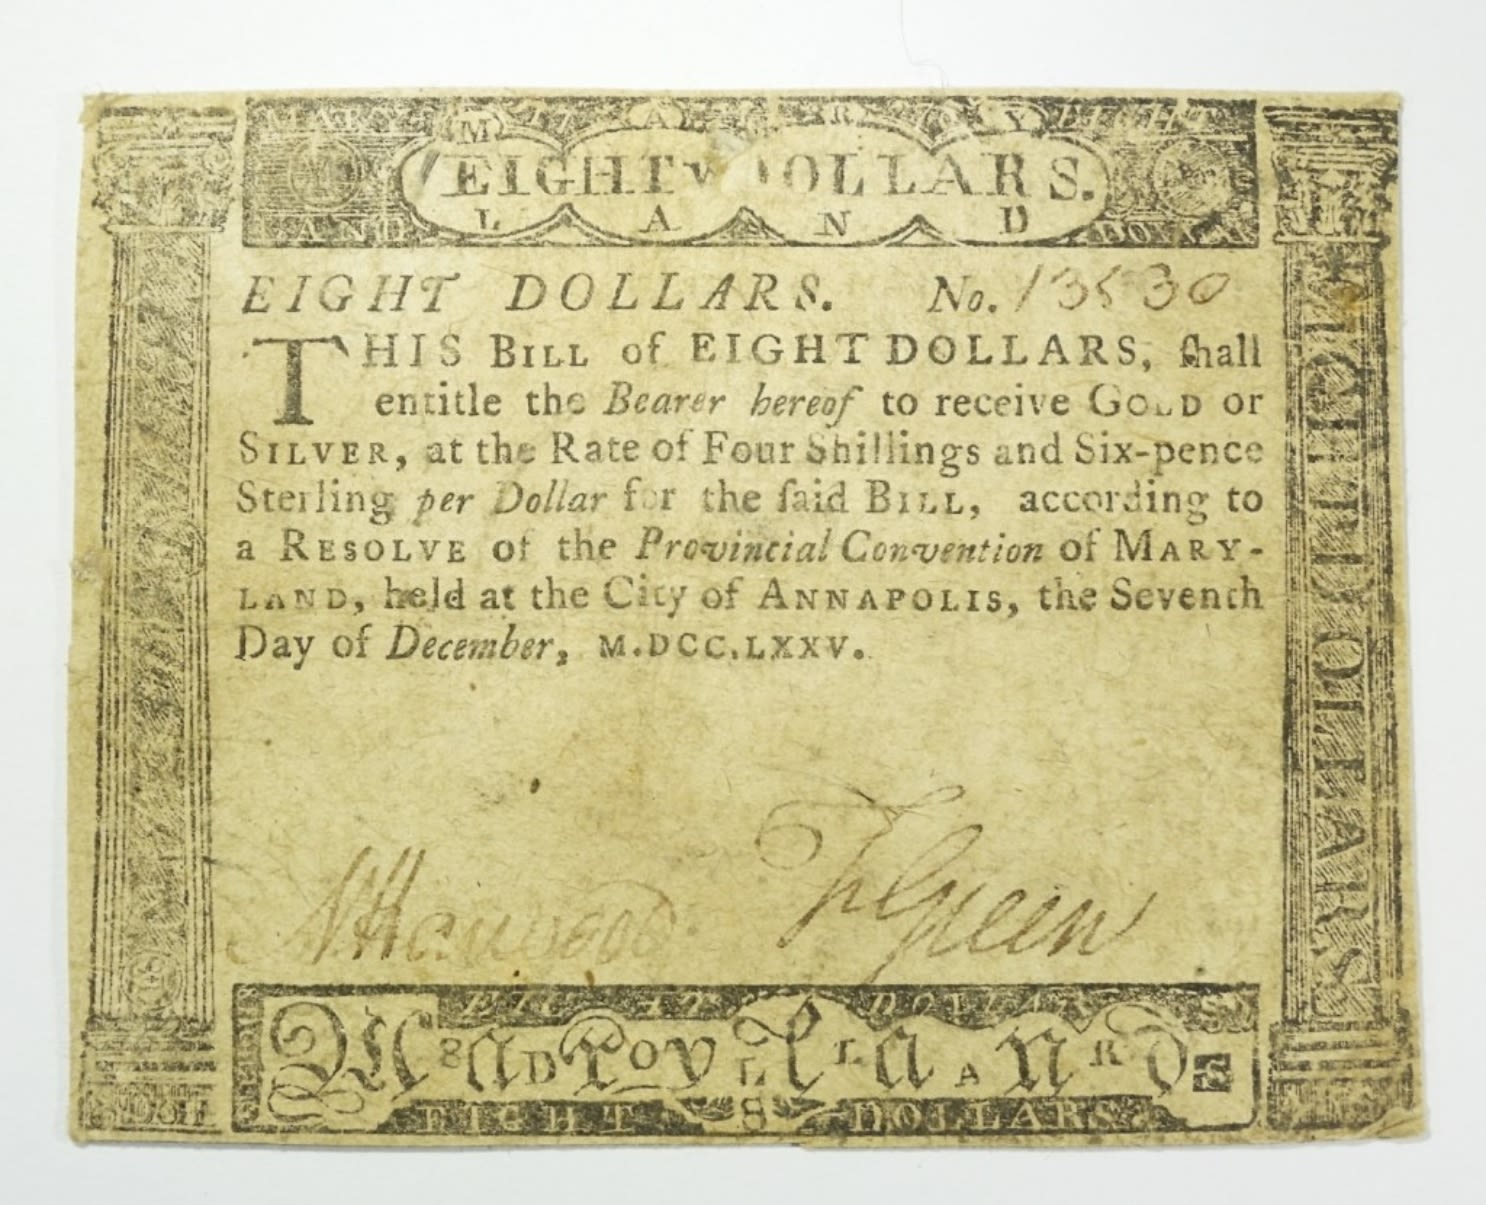 M A R Y
EIGHT DOLLARS.
L A N D
EIGHT DOLLARS. No. 13530
THIS BILL of EIGHT DOLLARS, ſhall
entitle the Bearer hereof to receive GOLD or
SILVER, at the Rate of Four Shillings and Six-pence
Sterling per Dollar for the ſaid BILL, according to
a RESOLVE of the Provincial Convention of MARY-
LAND, held at the City of ANNAPOLIS, the Seventh
Day of December, M.DCC.LXXV.
EIGHT DOLLARS
N Harwood Fr Green
EIGHT DOLLARS
Maryland
8 D O L L A R S
EIGHT DOLLARS